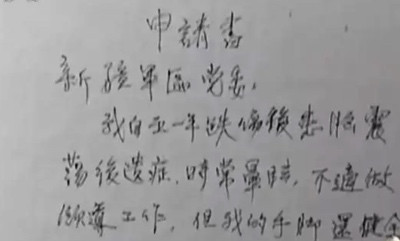 申請書
新疆軍區党委：
我自五一年跌傷後患腦震
蕩後遺症，時常暈眩，不適做
領導工作，但我的手脚還健全